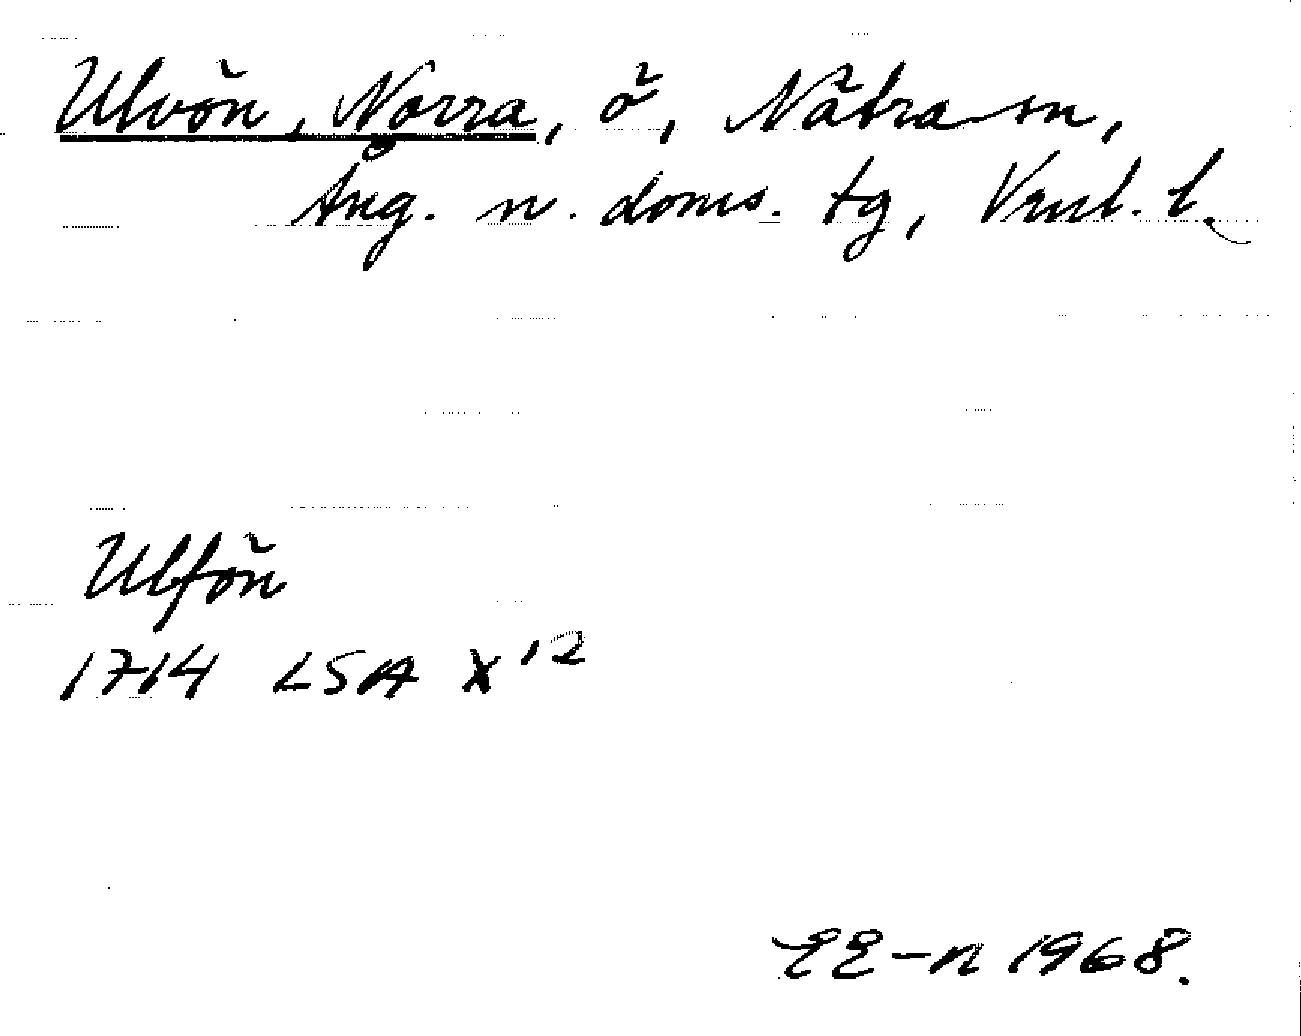 Ulvön, Norra, ö, Nätra sn,
Ång. n. doms. tg, Vnl. l.
Ulfön
1714 LSA X12
EE-n 1968.